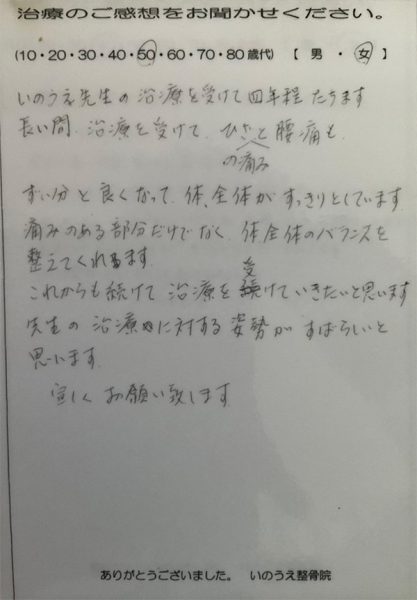 治療のご感想をお聞かせください。
(10・20・30・40・50・60・70・80歳代) 【 男 ・ 女 】
いのうえ先生の治療を受けて四年程たちます
長い間、治療を受けて、ひざと腰痛も、
の痛み
ずい分と良くなって、体、全体がすっきりとしています
痛みのある部分だけでなく、体全体のバランスを
整えてくれます。
これからも続けて治療を受けていきたいと思います
先生の治療に対する姿勢がすばらしいと
思います。
宜しくお願い致します
ありがとうございました。 いのうえ整骨院